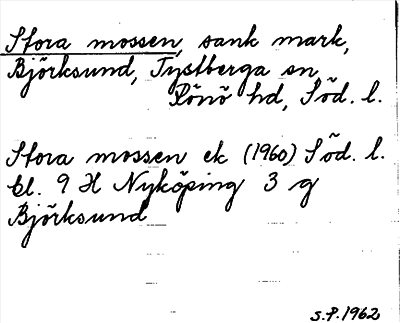 Stora mossen, sank mark,
Björksund, Tystberga sn,
Rönö hd, Söd. l.
Stora mossen ek (1960) Söd. l.
bl. 9 H Nyköping 3 g
Björksund
S.P. 1962